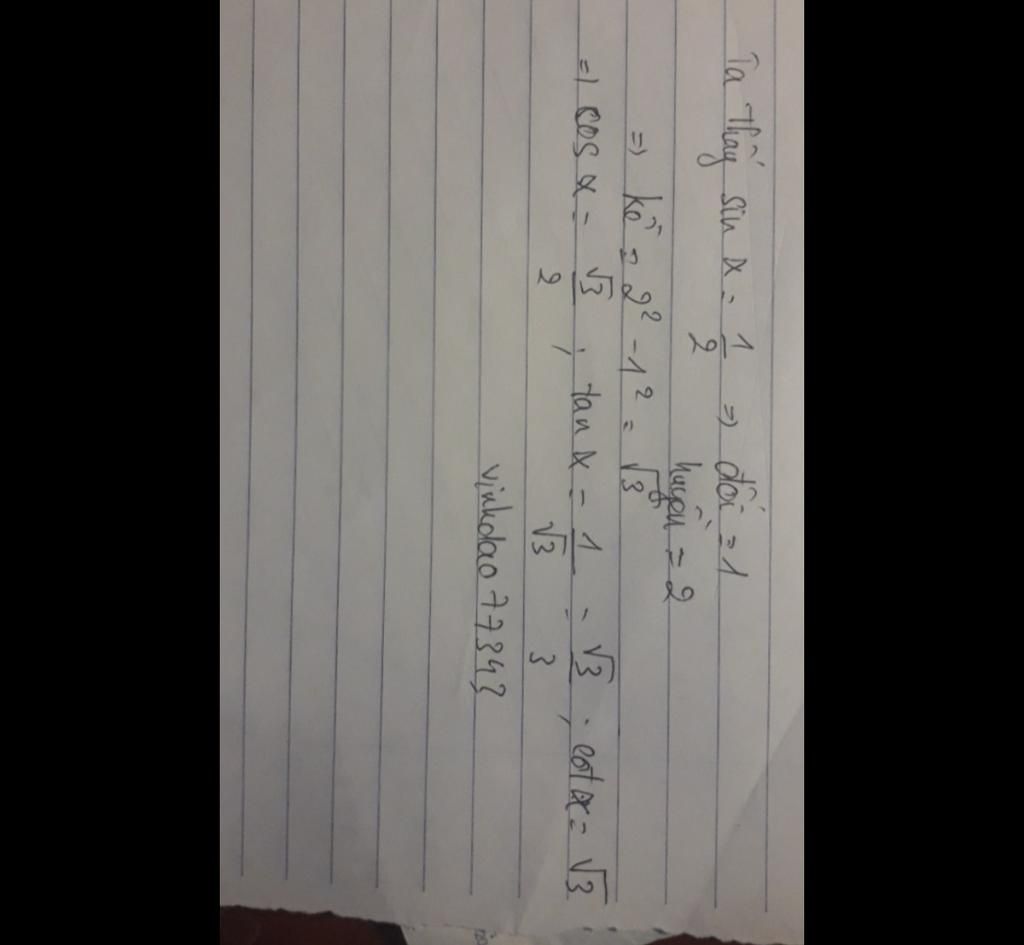 Ta thấy sin α = 1/2 => đối = 1
huyền = 2
=> kề = 2² - 1² = √3
=> cos α = √3/2 ; tan α = 1/√3 = √3/3 ; cot α = √3
vinhdao77343